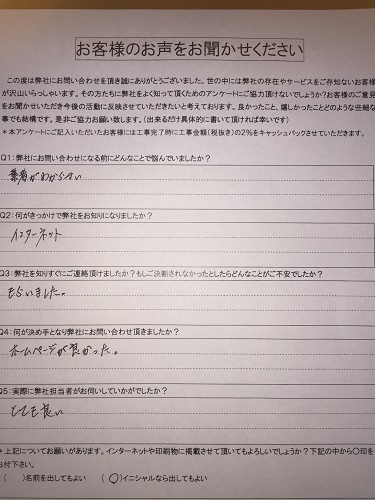 お客様のお声をお聞かせください
この度は弊社にお問い合わせを頂き誠にありがとうございました。世の中には弊社の存在やサービスをご存知ないお客様
が沢山いらっしゃいます。その方たちに弊社をよく知って頂くためのアンケートにご協力頂けないでしょうか?お客様のご意見
をお聞かせいただき今後の活動に反映させていただきたいと考えております。良かったこと、嬉しかったことどのような些細な
事でも結構です。是非ご協力お願い致します。(出来るだけ具体的に書いて頂ければ幸いです)
*本アンケートにご記入いただいたお客様には工事完了時に工事金額(税抜き)の2%をキャッシュバックさせていただきます。
Q1:弊社にお問い合わせになる前にどんなことで悩んでいましたか?
業者がわからない
Q2:何がきっかけで弊社をお知りになりましたか?
インターネット
Q3:弊社を知りすぐにご連絡頂けましたか?もしご決断されなかったとしたらどんなことがご不安でしたか?
もらいました。
Q4:何が決め手となり弊社にお問い合わせ頂きましたか?
ホームページが良かった。
Q5:実際に弊社担当者がお伺いしていかがでしたか?
とても良い
*上記についてお願いがあります。インターネットや印刷物に掲載させて頂いてもよろしいでしょうか?下記の中から〇印を
お付下さい。
( )名前を出してもよい (〇)イニシャルなら出してもよい